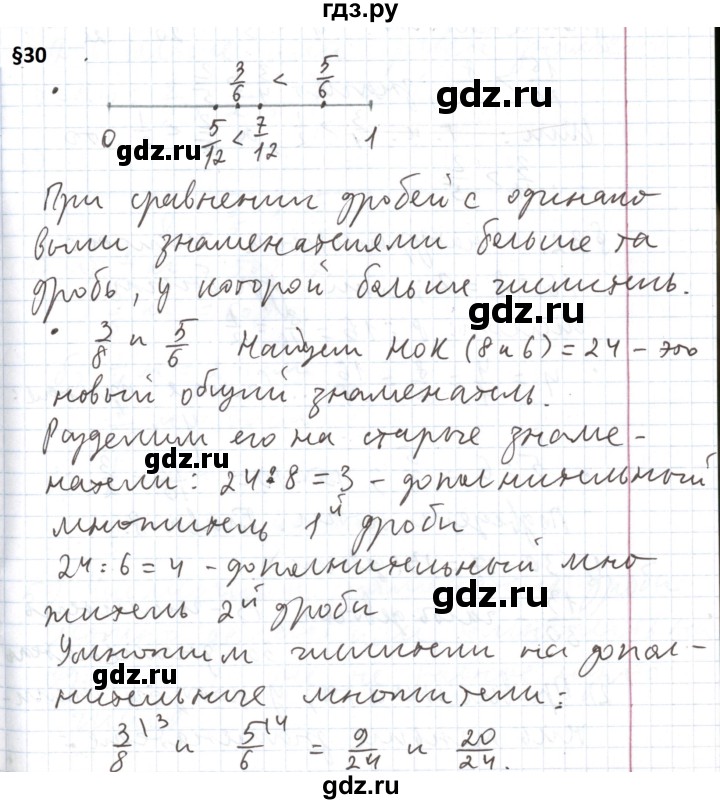 гдз.ру
§30
3/6 < 5/6
гдз.ру
0 5/12 < 7/12 1
гдз.ру
При сравнении дробей с одинако
выми знаменателями больше та
дробь, у которой больше числитель.
гдз.ру
• 3/8 и 5/6 Найдем НОК (8 и 6) = 24 – это
новый общий знаменатель.
Разделим его на старые знаме-
гдз.ру
натели: 24:8 = 3 – дополнительный
множитель 1й дроби
24 : 6 = 4 – дополнительный мно
гдз.ру
житель 2й дроби
Умножим числители на допол-
гдз.ру
нительные множители:
3/8 \3 и 5/6 \4 = 9/24 и 20/24.
гдз.ру